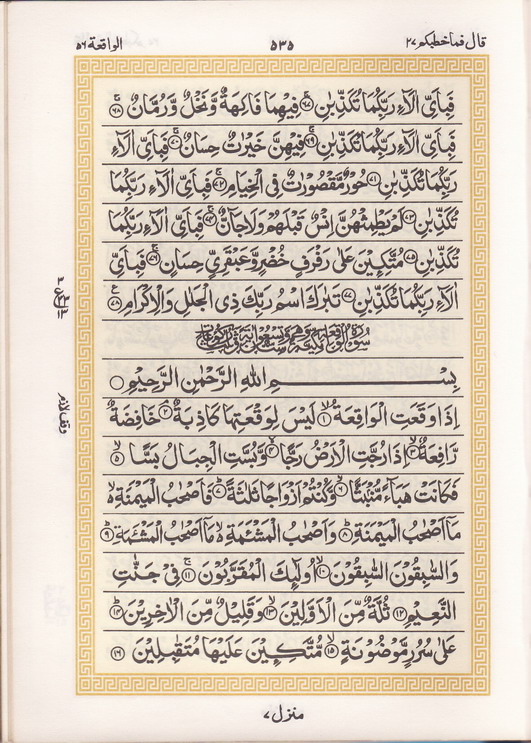 قال فماخطبكم ٢٧
٥٣٥
الواقعة ٥٦
فَبِاَيِّ اٰلَآءِ رَبِّكُمَا تُكَذِّبٰنِ ﴿٦٧﴾ فِيْهِمَا فَاكِهَةٌ وَّنَخْلٌ وَّرُمَّانٌ ﴿٦٨﴾
فَبِاَيِّ اٰلَآءِ رَبِّكُمَا تُكَذِّبٰنِ ﴿٦٩﴾ فِيْهِنَّ خَيْرٰتٌ حِسَانٌ ﴿٧٠﴾ فَبِاَيِّ اٰلَآءِ
رَبِّكُمَا تُكَذِّبٰنِ ﴿٧١﴾ حُوْرٌ مَّقْصُوْرٰتٌ فِي الْخِيَامِ ﴿٧٢﴾ فَبِاَيِّ اٰلَآءِ رَبِّكُمَا
تُكَذِّبٰنِ ﴿٧٣﴾ لَمْ يَطْمِثْهُنَّ اِنْسٌ قَبْلَهُمْ وَلَا جَآنٌّ ﴿٧٤﴾ فَبِاَيِّ اٰلَآءِ رَبِّكُمَا
تُكَذِّبٰنِ ﴿٧٥﴾ مُتَّكِـِٕيْنَ عَلٰى رَفْرَفٍ خُضْرٍ وَّعَبْقَرِيٍّ حِسَانٍ ﴿٧٦﴾ فَبِاَيِّ
اٰلَآءِ رَبِّكُمَا تُكَذِّبٰنِ ﴿٧٧﴾ تَبٰرَكَ اسْمُ رَبِّكَ ذِي الْجَلٰلِ وَالْاِكْرَامِ ﴿٧٨﴾
بِسْــــــمِ اللّٰهِ الرَّحْمٰنِ الرَّحِيْمِ
اِذَا وَقَعَتِ الْوَاقِعَةُ ﴿١﴾ لَيْسَ لِوَقْعَتِهَا كَاذِبَةٌ ﴿٢﴾ خَافِضَةٌ
رَّافِعَةٌ ﴿٣﴾ اِذَا رُجَّتِ الْاَرْضُ رَجًّا ﴿٤﴾ وَّبُسَّتِ الْجِبَالُ بَسًّا ﴿٥﴾
فَكَانَتْ هَبَآءً مُّنْۢبَثًّا ﴿٦﴾ وَّكُنْتُمْ اَزْوَاجًا ثَلٰثَةً ﴿٧﴾ فَاَصْحٰبُ الْمَيْمَنَةِ
مَآ اَصْحٰبُ الْمَيْمَنَةِ ﴿٨﴾ وَاَصْحٰبُ الْمَشْـَٔمَةِ مَآ اَصْحٰبُ الْمَشْـَٔمَةِ ﴿٩﴾
وَالسّٰبِقُوْنَ السّٰبِقُوْنَ ﴿١٠﴾ اُولٰٓئِكَ الْمُقَرَّبُوْنَ ﴿١١﴾ فِيْ جَنّٰتِ
النَّعِيْمِ ﴿١٢﴾ ثُلَّةٌ مِّنَ الْاَوَّلِيْنَ ﴿١٣﴾ وَقَلِيْلٌ مِّنَ الْاٰخِرِيْنَ ﴿١٤﴾
عَلٰى سُرُرٍ مَّوْضُوْنَةٍ ﴿١٥﴾ مُّتَّكِـِٕيْنَ عَلَيْهَا مُتَقٰبِلِيْنَ ﴿١٦﴾
وقف لازم
منزل ٧